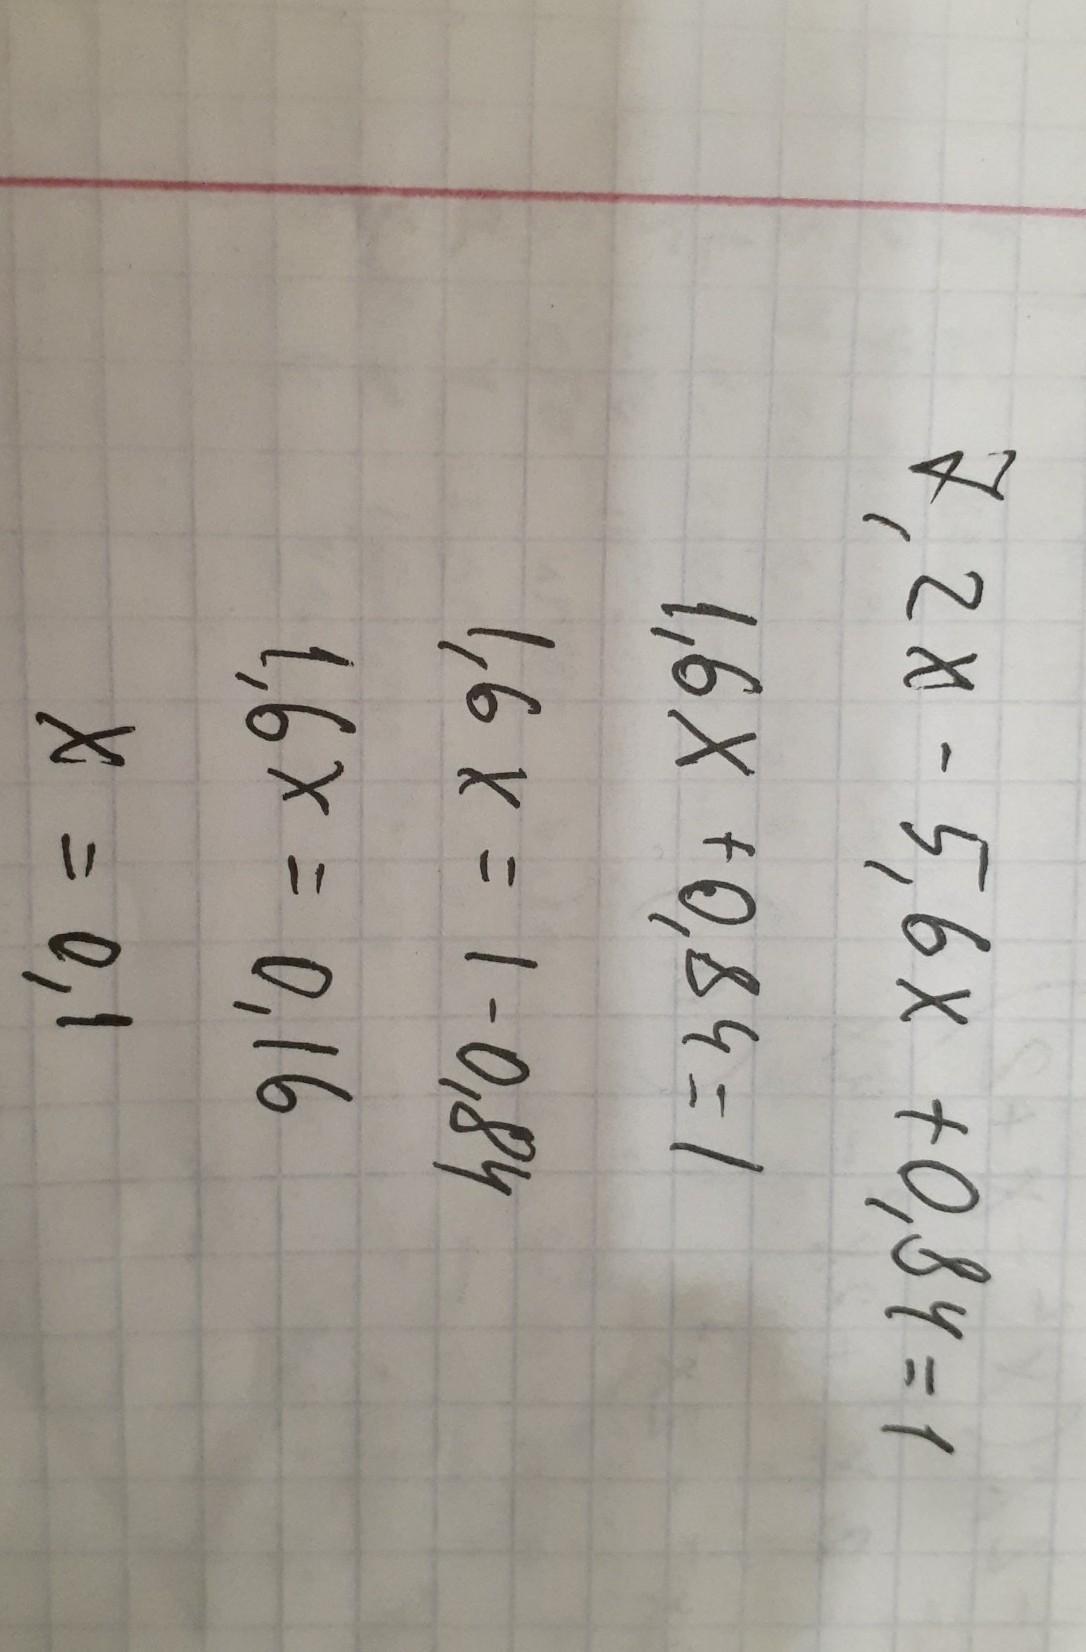 7,2x - 5,6x + 0,84 = 1
1,6x + 0,84 = 1
1,6x = 1 - 0,84
1,6x = 0,16
x = 0,1